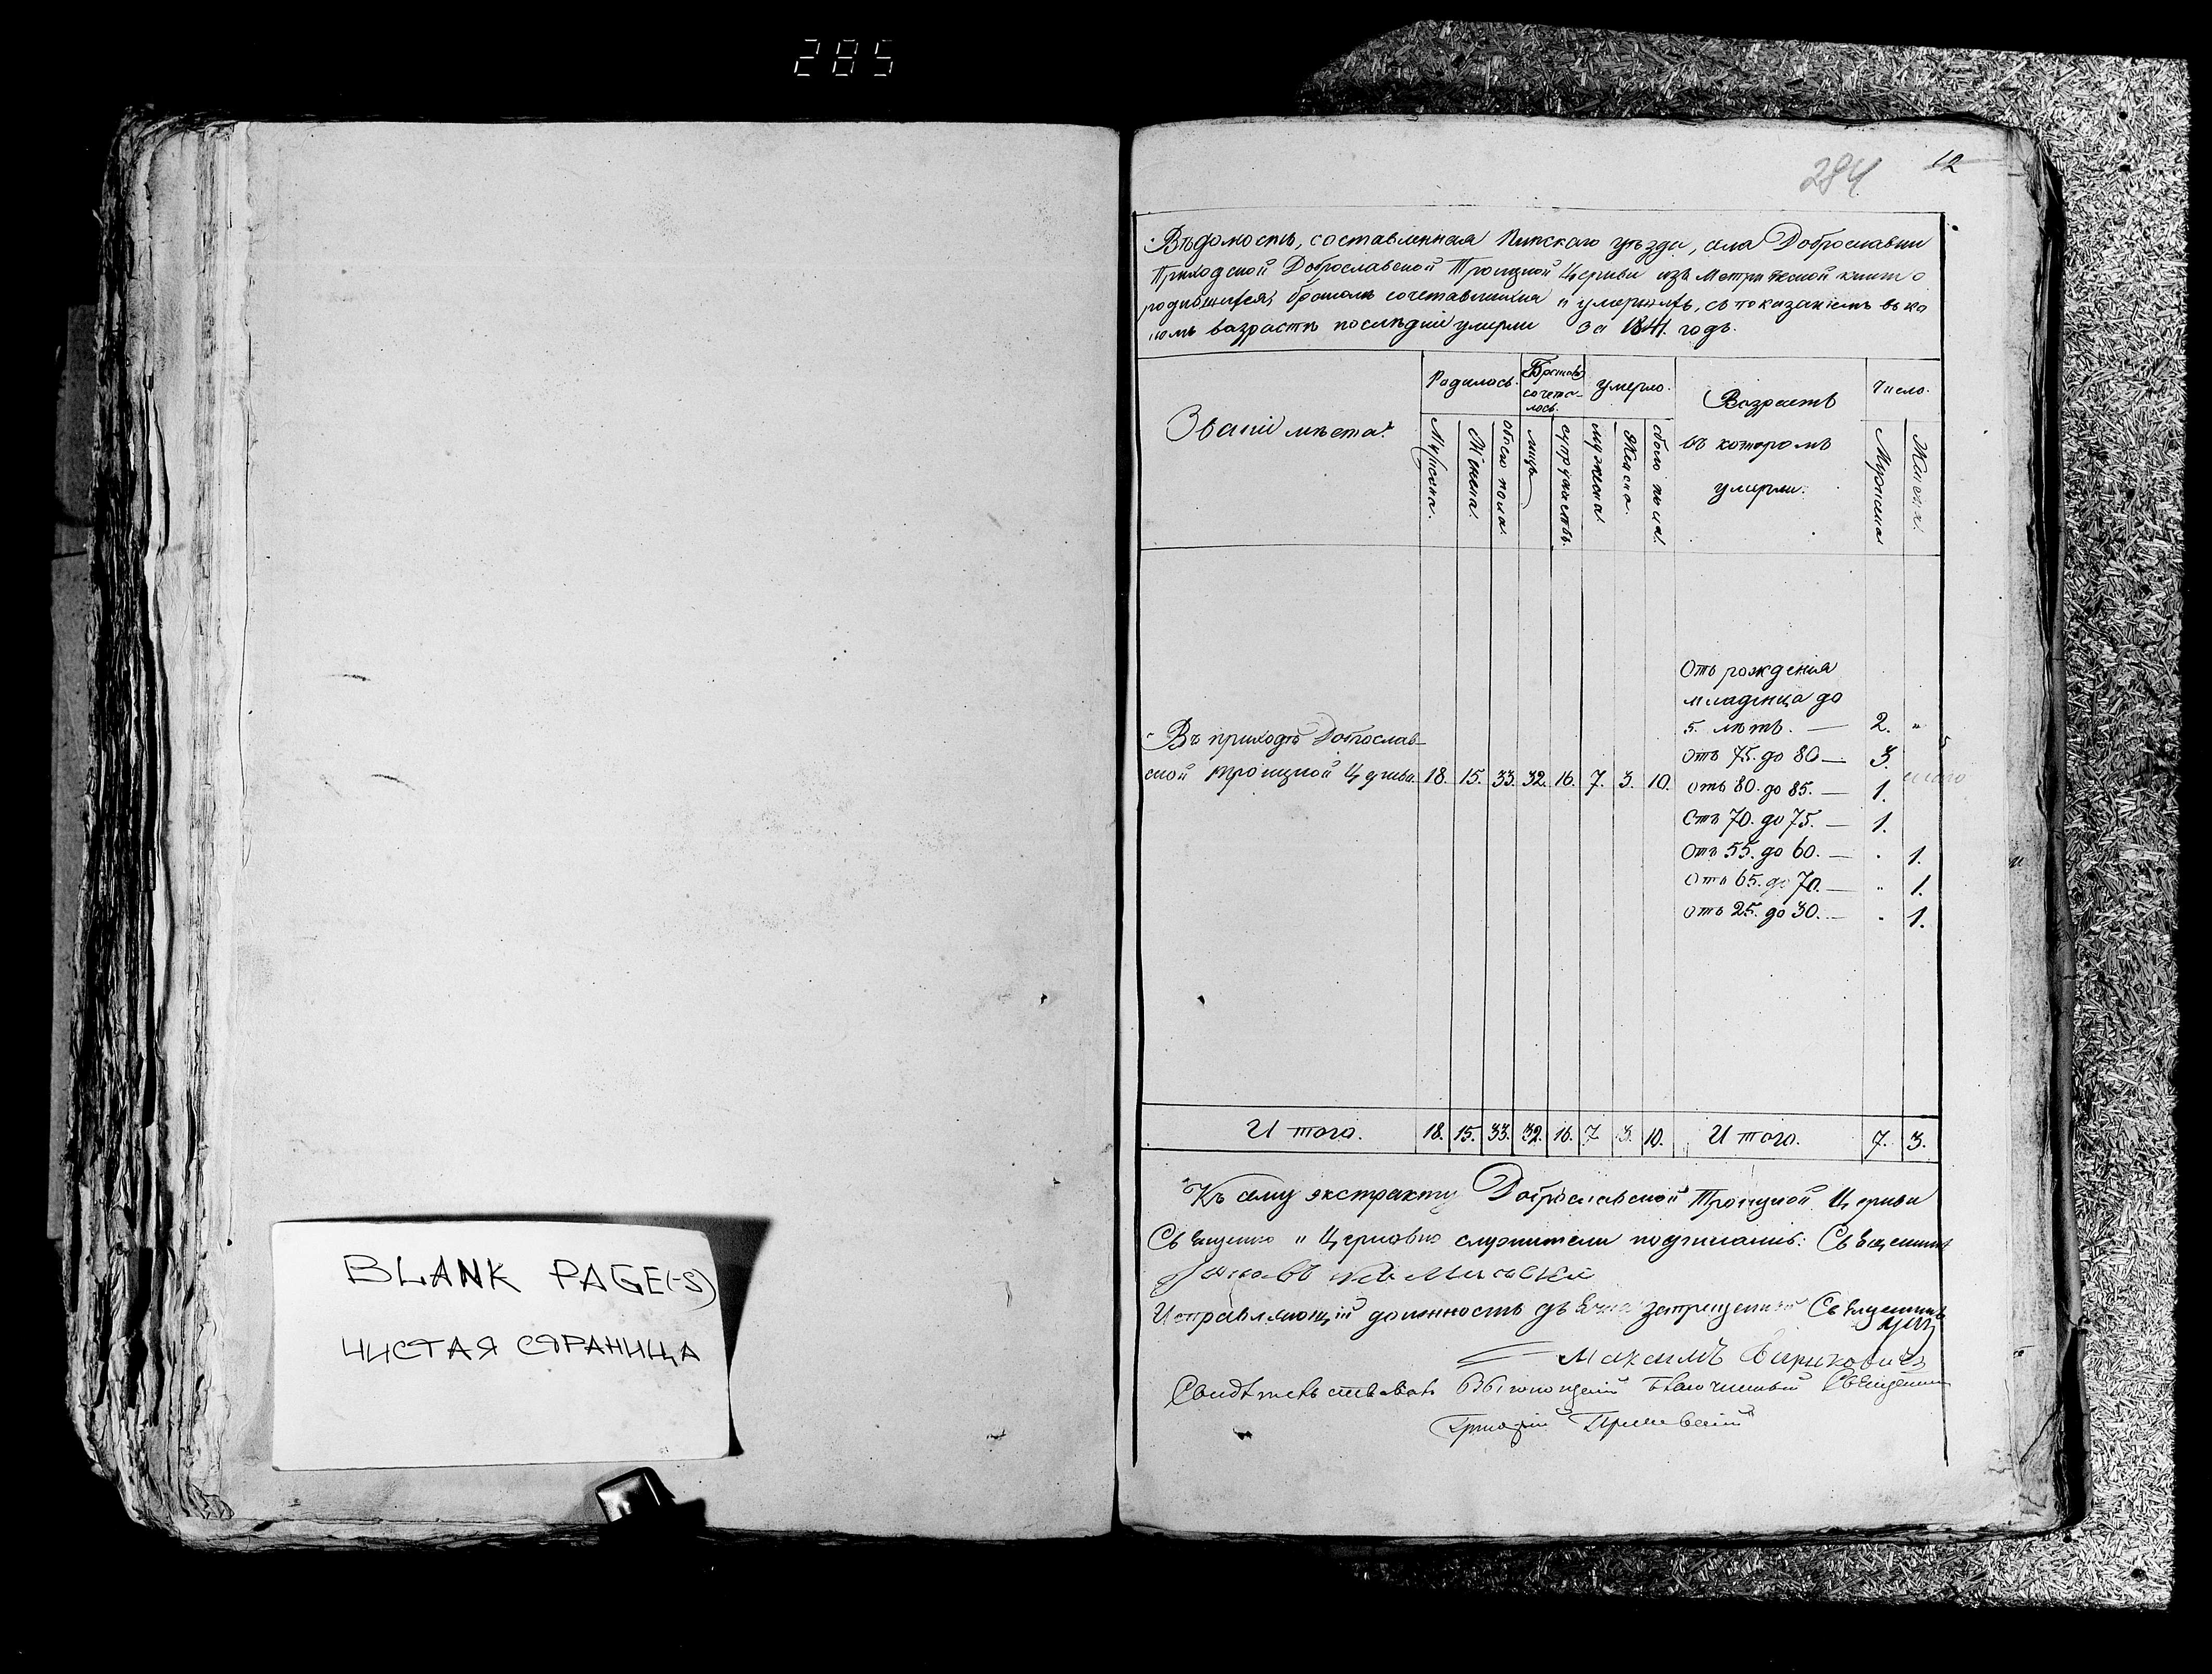 285
284
12
Вѣдомость, составленная Пинскаго уѣзда, села Доброславки
Приходской Доброславской Троицкой Церкви изъ Метрической книги о
родившихся, бракомъ сочетавшихся и умершихъ, съ показаніемъ въ ка
комъ возрастѣ последніи умерли за 1841 годъ.
Званіи мѣста.
Родилось.
Бракомъ сочета-лось.
умерло.
Возрастъ въ которомъ умерли.
Число.
Мужска.
Женска.
обоего пола.
лицъ
супружествъ.
мужска.
Женска.
обоего пола.
Мужска
Женска.
Отъ рожденія
младенца до
5. лѣтъ. — 2. "
Въ приходѣ Доброслав-
ской Троицкой Церкви. 18. 15. 33. 32. 16. 7. 3. 10.
Отъ 75. до 80 — 3.
отъ 80. до 85. — 1.
Отъ 70. до 75. — 1.
Отъ 55. до 60. — " 1.
Отъ 65. до 70. — " 1.
Отъ 25. до 30. — " 1.
Итого. 18. 15. 33. 32. 16. 7 3. 10. Итого. 7. 3.
Къ сему экстракту Доброславской Троицкой Церкви
Священно и Церковно служители подписались: Священникъ
Исправляющій должность дьячка запрещенный Священникъ
Максимъ
Свидѣтельствовалъ Благочинный Священникъ
Григорій
BLANK PAGE(-S)
ЧИСТАЯ СТРАНИЦА